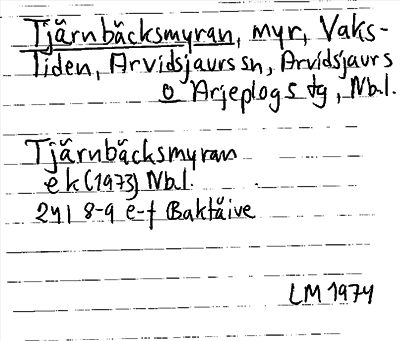 Tjärnbäcksmyran, myr, Vaks-
liden, Arvidsjaurs sn, Arvidsjaurs
o Arjeplogs tg, Nbl.
Tjärnbäcksmyran
ek (1973) Nbl.
24I 8-9 e-f Baktåive
LM 1974